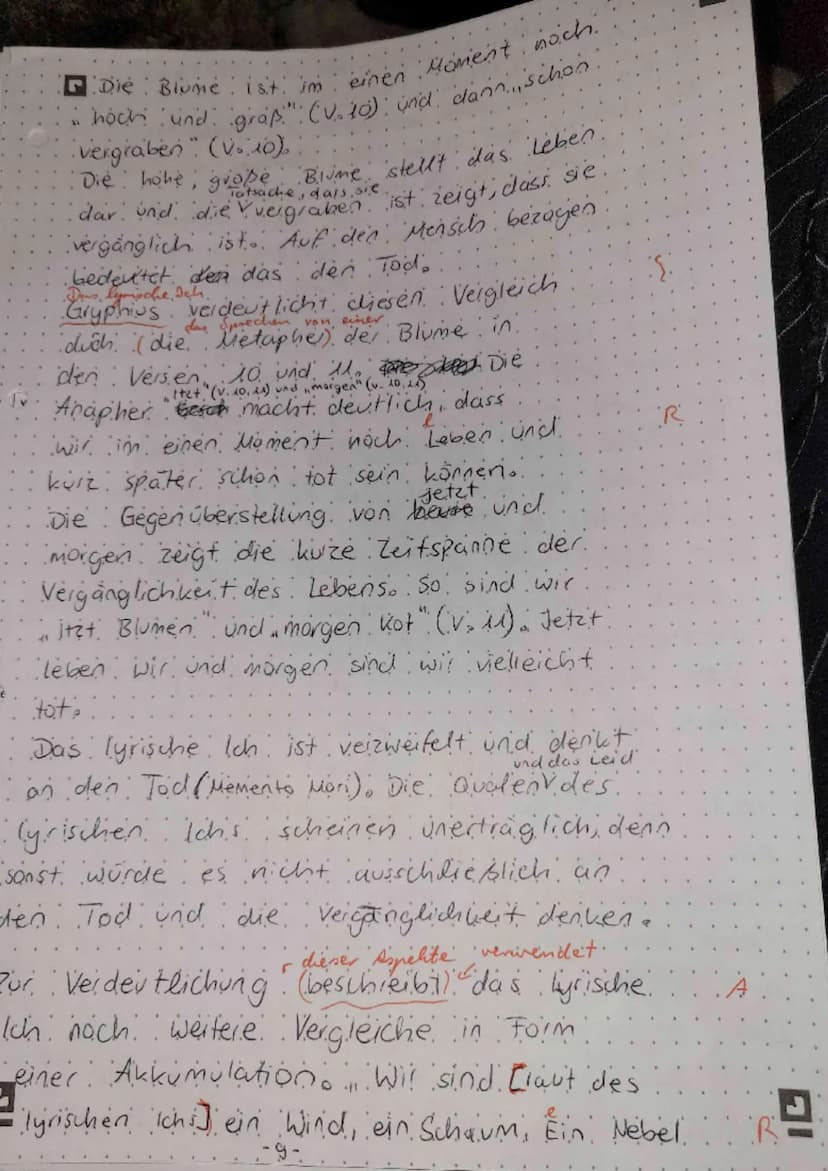 Die Blume ist im einen Moment noch
„hoch und groß" (V. 10) und dann „schon
vergraben" (V. 10).
Die hohe, große Blume stellt das Leben
Tatsache, dass sie
dar und die vergraben ist zeigt, dass sie
vergänglich ist. Auf den Mensch bezogen
bedeutet das den Tod.
Das lyrische Ich
Gryphius verdeutlicht diesen Vergleich
das Sprechen von einer
duch (die Metapher) der Blume in
den Versen 10 und 11. Die
„itzt" (V. 10, 11) und „morgen" (V. 10, 11)
Anapher macht deutlich, dass
R
wir im einen Moment noch Leben und
l
kurz später schon tot sein können.
jetzt
Die Gegenüberstellung von heute und
morgen zeigt die kurze Zeitspanne der
Vergänglichkeit des Lebens. So sind wir
„itzt Blumen" und „morgen Kot" (V. 11). Jetzt
leben wir und morgen sind wir vielleicht
tot.
Das lyrische Ich ist verzweifelt und denkt
und das Leid
an den Tod (Memento Mori). Die Qualen des
lyrischen Ichs scheinen unerträglich, denn
sonst würde es nicht ausschließlich an
den Tod und die Vergänglichkeit denken.
dieser Aspekte verwendet
Zur Verdeutlichung (beschreibt) das lyrische A
Ich noch weitere Vergleiche in Form
einer Akkumulation. „Wir sind [laut des
lyrischen Ichs] ein Wind, ein Schaum, Ein Nebel R
e
-9-